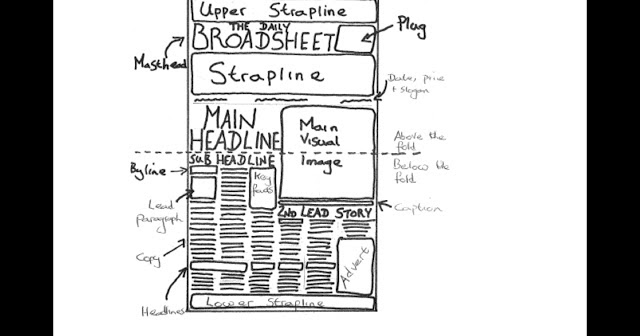 Upper Strapline
THE DAILY
BROADSHEET
Plug
Masthead
Strapline
Date, price
+ slogan
MAIN
HEADLINE
Main
Visual
Image
Above the
fold
SUB HEADLINE
Below the
fold
Byline
Key
facts
Lead
Paragraph
Caption
2ND LEAD STORY
Copy
Advert
Headlines
Lower Strapline